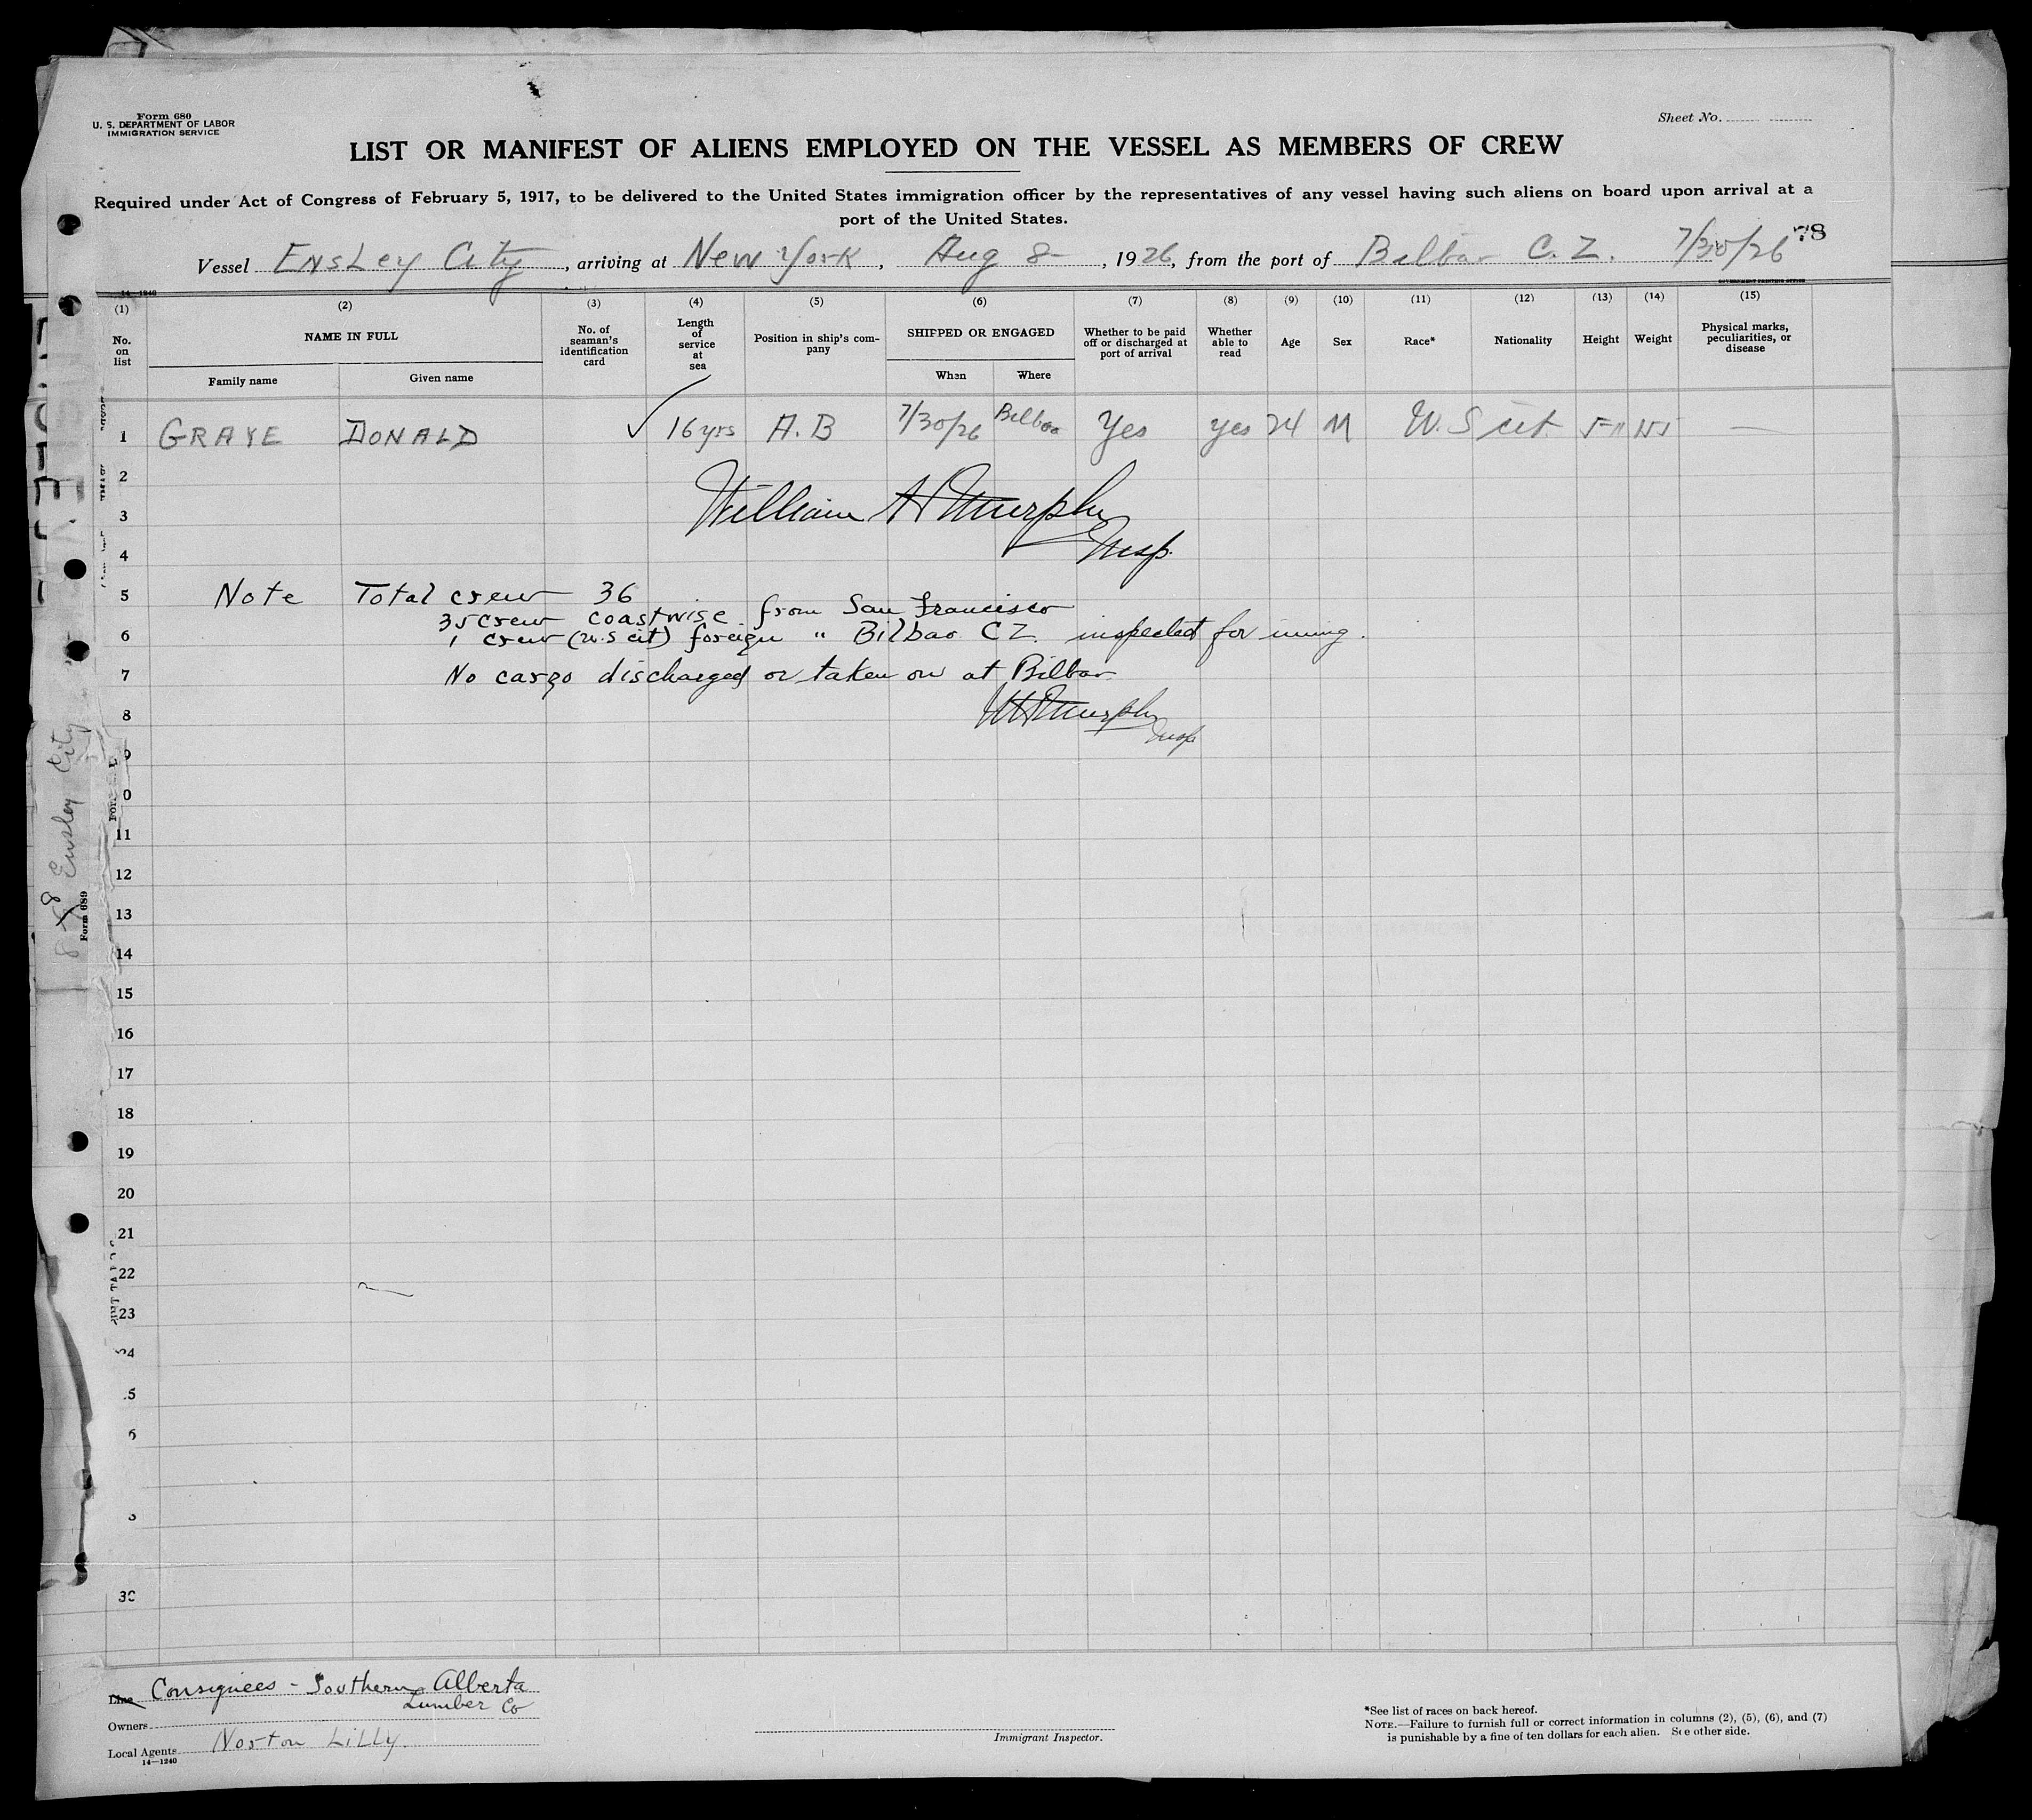 Form 680
U. S. DEPARTMENT OF LABOR
IMMIGRATION SERVICE
Sheet No.
LIST OR MANIFEST OF ALIENS EMPLOYED ON THE VESSEL AS MEMBERS OF CREW
Required under Act of Congress of February 5, 1917, to be delivered to the United States immigration officer by the representatives of any vessel having such aliens on board upon arrival at a
port of the United States.
78
Vessel Ensley City, arriving at New York, Aug 8-, 1926, from the port of Balboa C. Z. 7/30/26
14-1240 GOVERNMENT PRINTING OFFICE
(1) (2) (3) (4) (5) (6) (7) (8) (9) (10) (11) (12) (13) (14) (15)
No. on list NAME IN FULL No. of seaman's identification card Length of service at sea Position in ship's company SHIPPED OR ENGAGED Whether to be paid off or discharged at port of arrival Whether able to read Age Sex Race* Nationality Height Weight Physical marks, peculiarities, or disease
Family name Given name When Where
1 GRAYE DONALD ✓ 16 yrs A.B 7/30/26 Balboa Yes yes 24 M U.S cit 5-11 —
2
William H Murphy
3
Insp.
4
5 Note Total crew 36
35 crew coastwise from San Francisco
6 1 crew (U.S cit) foreign " Bilbao CZ. inspected for immg.
7 No cargo discharged or taken on at Bilbao
8 WHMurphy
Insp
9
0
11
12
13
14
15
16
17
18
19
20
21
22
23
24
5
6
30
8 Ensley City
Form 689
Line Consignees - Southern Alberta
Lumber Co
Owners
Local Agents Norton Lilly.
14-1240
Immigrant Inspector.
*See list of races on back hereof.
NOTE.—Failure to furnish full or correct information in columns (2), (5), (6), and (7)
is punishable by a fine of ten dollars for each alien. See other side.